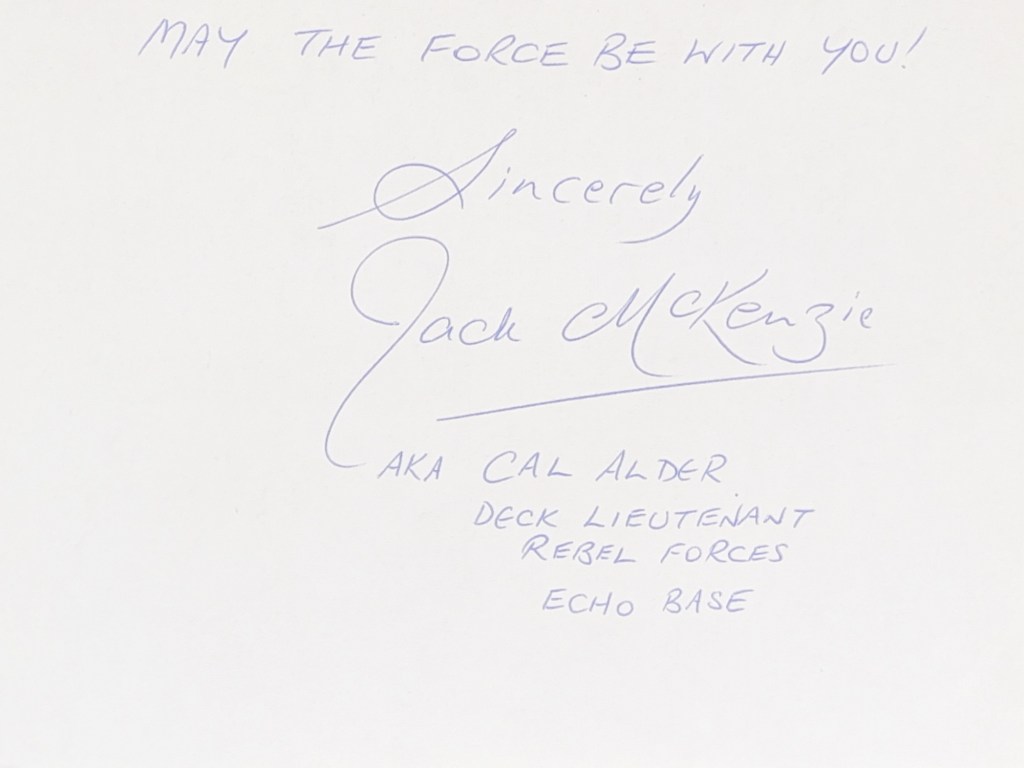 MAY THE FORCE BE WITH YOU!
Sincerely
Jack McKenzie
AKA CAL ALDER
DECK LIEUTENANT
REBEL FORCES
ECHO BASE